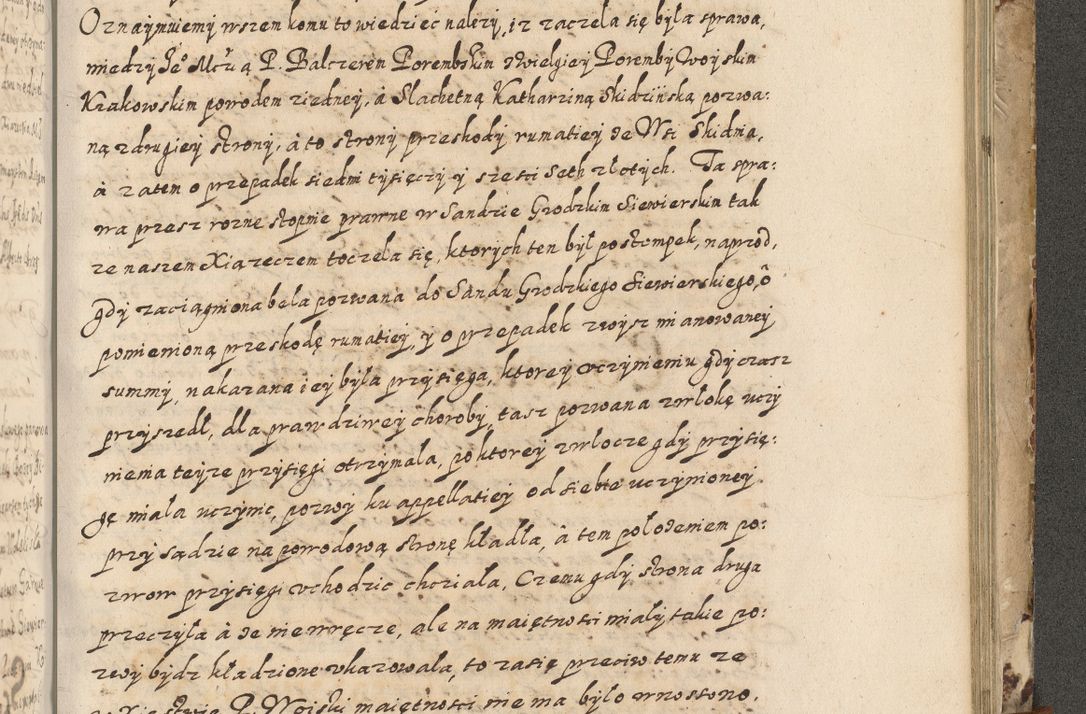 Oznaÿmuiemÿ wszem komu to wiedziec nalezÿ, iz zaczela się była sprawa,
miedzÿ Je° Mczią P. Balczerem Porembskim zwielgieÿ Porembÿ Woÿskim
Krakowskim powodem ziedneÿ, à Slachetną Katharziną Skidzińską pozwa:
ną zdrugieÿ stronÿ, à to stronÿ przeskodÿ rumatieÿ ze Wsi Skidnia,
à zatem o przepadek siedmi tÿsięczÿ ÿ szesci seth złotÿch. Ta spra:
wa przesz rozne stopnie prawne w Sandzie Grodzkim Siewierskim tak
ze naszem Xiązeczem toczela się, ktorÿch ten bÿł postempek, naprzod,
gdÿ zaciągniona bela pozwana do Sandu Grodzkiego Siewierskiego, o
pomienioną przeskodę rumatieÿ, ÿ o przepadek zwÿsz mianowaneÿ
summÿ, nakazana ieÿ bÿła przÿsięga, ktoreÿ vczÿnieniu gdÿ czasz
przÿszedł, dla prawdziweÿ chorobÿ, tasz pozwana zwlokę uczÿ
nienia teÿze przÿsięgi otrzÿmala, po ktoreÿ zwlocze gdÿ przÿsię:
gę miala uczÿnic, pozwÿ ku appellatieÿ od siebie uczÿnioneÿ
przÿ sądzie na powodową stronę kładła, à tem położeniem po:
zwow przÿsięgi vchodzic chciala, Czemu gdÿ strona druga
przeczÿla à ze nie wręcze, ale na maiętnosci mialÿ takie po:
zwÿ bÿdz kładzione vkazowala, to zasię przeciw temu ze
w Xięstwie P. Woiski maiętnosci nie ma bÿło wnoszono.